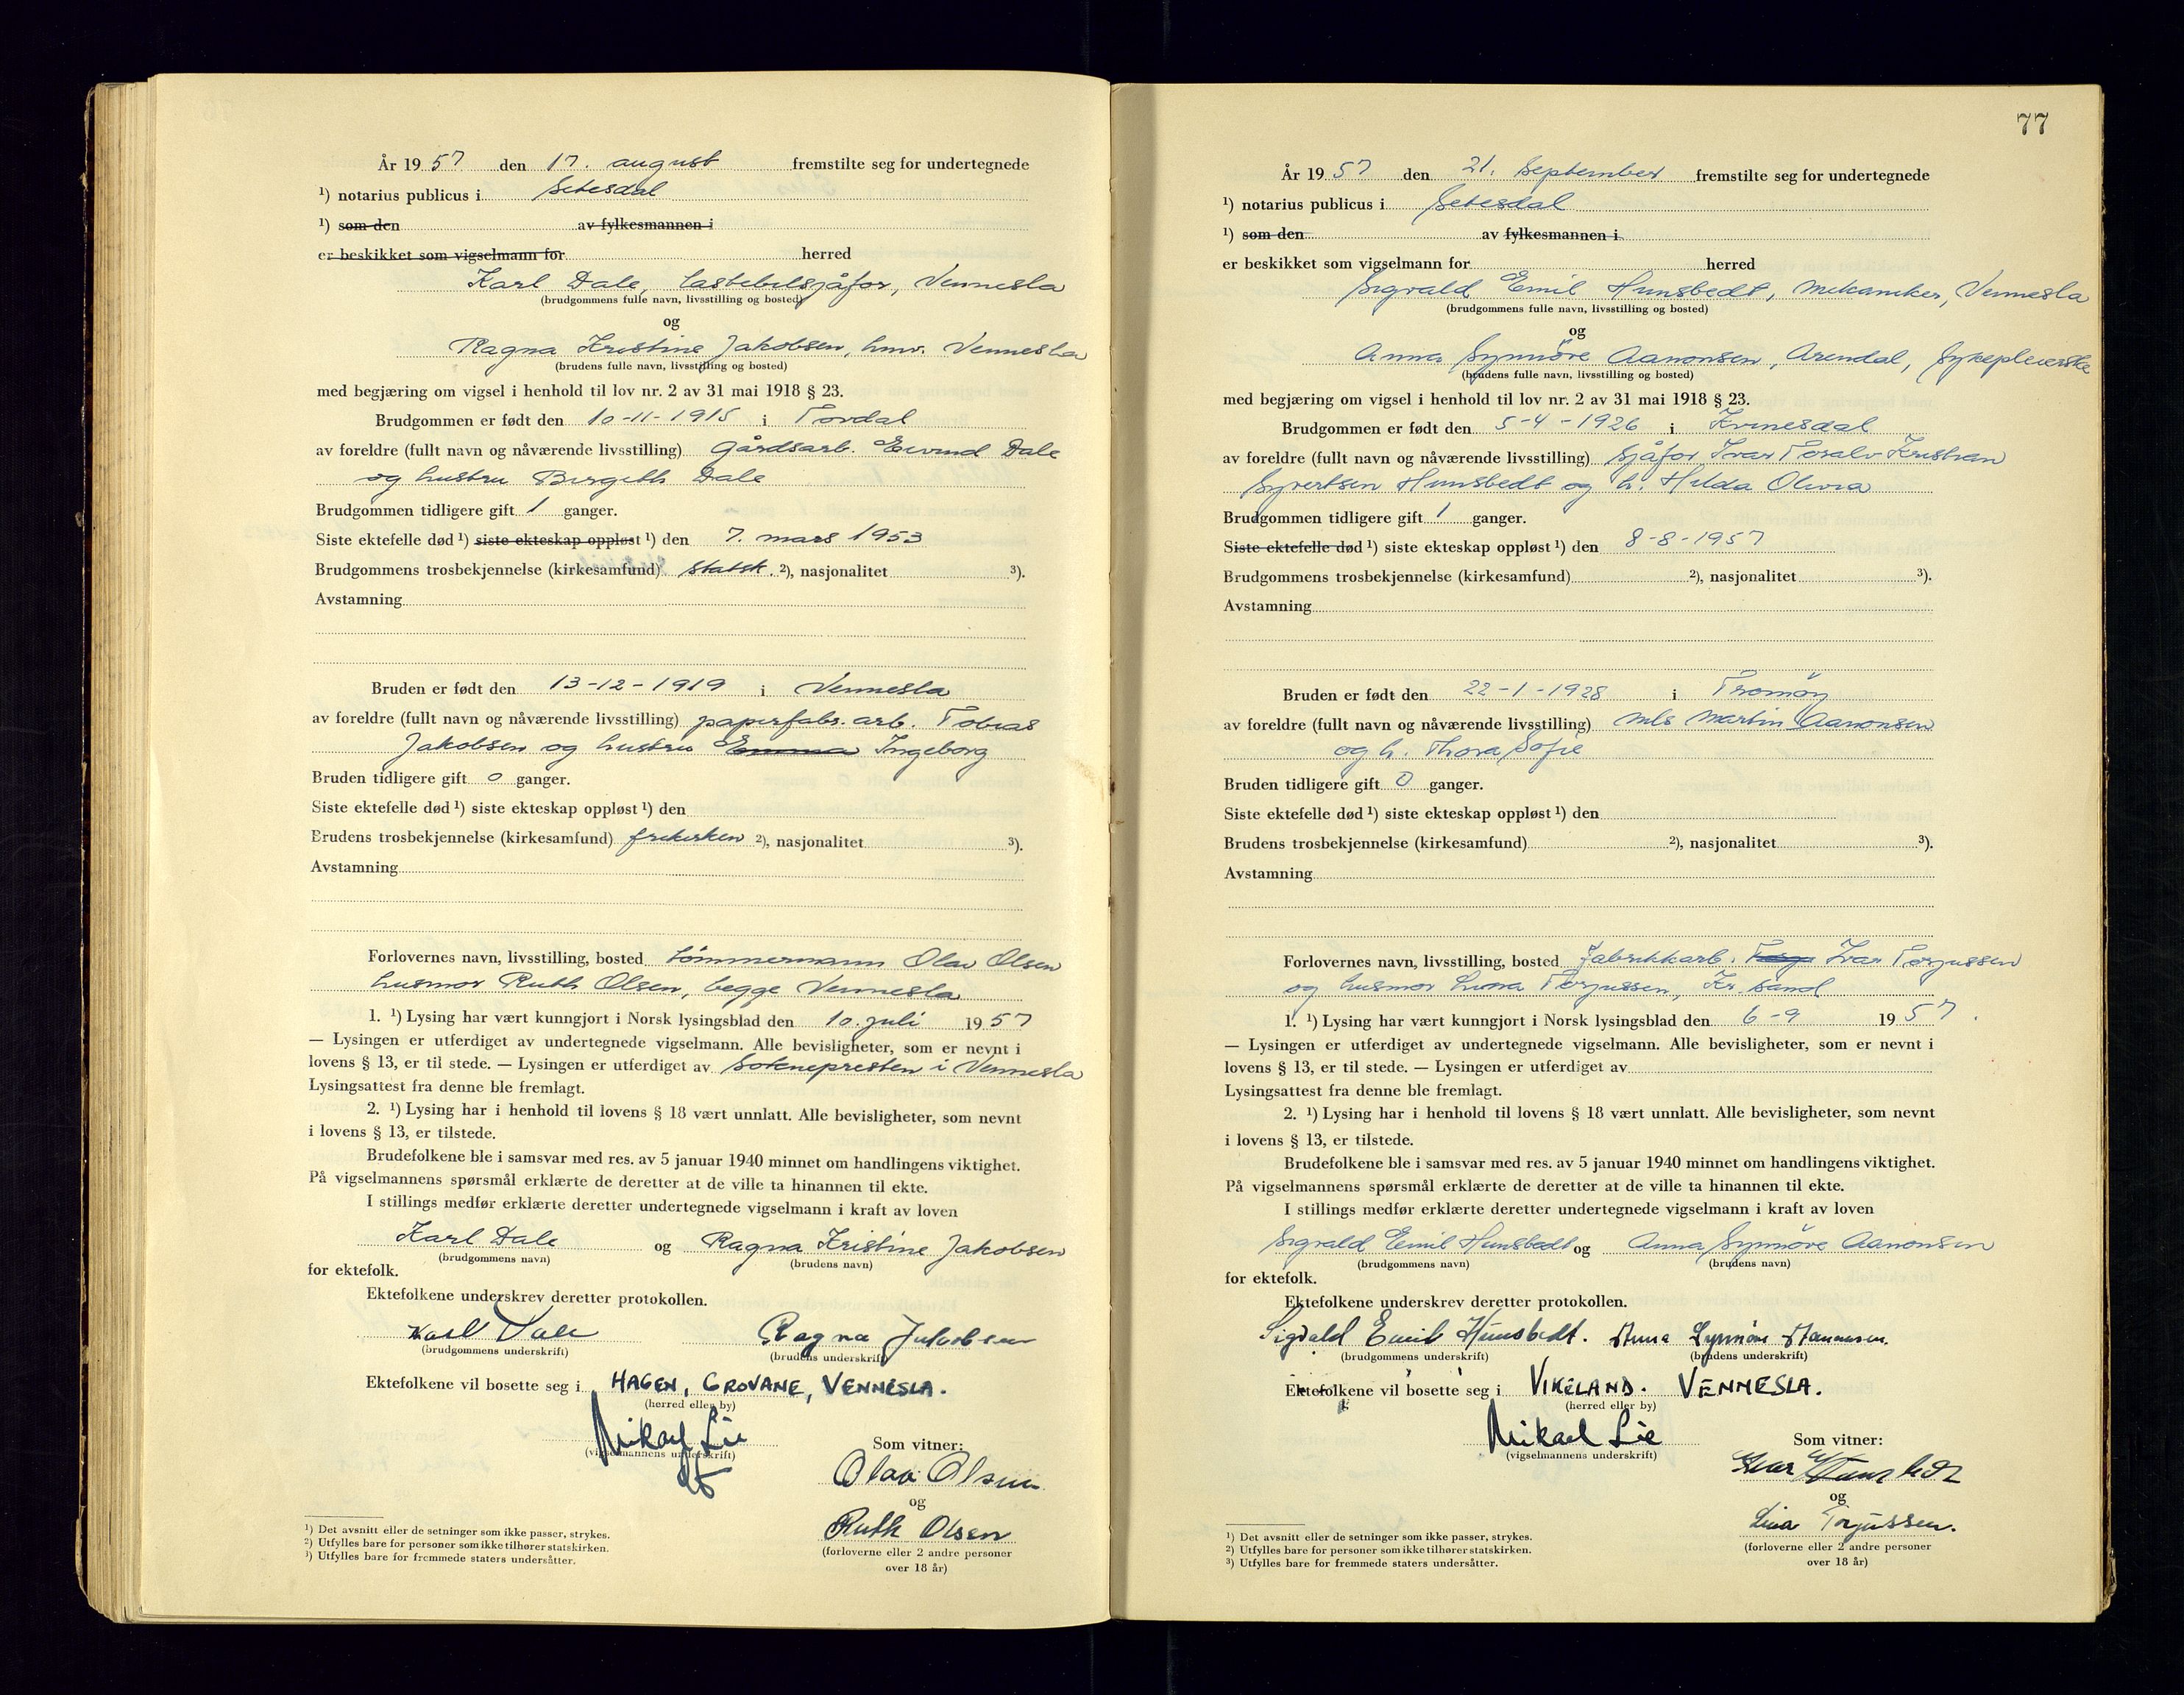 År 1957 den 17. august fremstilte seg for undertegnede
¹) notarius publicus i Setesdal
¹) som den av fylkesmannen i
er beskikket som vigselmann for herred
Karl Dale, lastebilsjåfør, Vennesla
(brudgommens fulle navn, livsstilling og bosted)
og
Ragna Kristine Jakobsen, hmv. Vennesla
(brudens fulle navn, livsstilling og bosted)
med begjæring om vigsel i henhold til lov nr. 2 av 31 mai 1918 § 23.
Brudgommen er født den 10-11-1915 i Tordal
av foreldre (fullt navn og nåværende livsstilling) gårdsarb. Eivind Dale
og hustru Birgith Dale
Brudgommen tidligere gift 1 ganger.
Siste ektefelle død ¹) siste ekteskap oppløst ¹) den 7. mars 1953
Brudgommens trosbekjennelse (kirkesamfund) statsk. ²), nasjonalitet ³).
Avstamning
Bruden er født den 13-12-1919 i Vennesla
av foreldre (fullt navn og nåværende livsstilling) papirfabr. arb. Tobias
Jakobsen og hustru Emma Ingeborg
Bruden tidligere gift 0 ganger.
Siste ektefelle død ¹) siste ekteskap oppløst ¹) den
Brudens trosbekjennelse (kirkesamfund) frikirken ²), nasjonalitet ³).
Avstamning
Forlovernes navn, livsstilling, bosted tømmermann Olav Olsen
husmor Ruth Olsen, begge Vennesla
1. ¹) Lysing har vært kunngjort i Norsk lysingsblad den 10. juli 1957
— Lysingen er utferdiget av undertegnede vigselmann. Alle bevisligheter, som er nevnt i
lovens § 13, er til stede. — Lysingen er utferdiget av Soknepresten i Vennesla
Lysingsattest fra denne ble fremlagt.
2. ¹) Lysing har i henhold til lovens § 18 vært unnlatt. Alle bevisligheter, som nevnt
i lovens § 13, er tilstede.
Brudefolkene ble i samsvar med res. av 5 januar 1940 minnet om handlingens viktighet.
På vigselmannens spørsmål erklærte de deretter at de ville ta hinannen til ekte.
I stillings medfør erklærte deretter undertegnede vigselmann i kraft av loven
Karl Dale og Ragna Kristine Jakobsen
(brudgommens navn) (brudens navn)
for ektefolk.
Ektefolkene underskrev deretter protokollen.
Karl Dale Ragna Jakobsen
(brudgommens underskrift) (brudens underskrift)
Ektefolkene vil bosette seg i HAGEN, GROVANE, VENNESLA.
(herred eller by)
Mikael Lie
(vigselmannens underskrift)
Som vitner:
Olav Olsen
og
Ruth Olsen
(forloverne eller 2 andre personer
over 18 år)
¹) Det avsnitt eller de setninger som ikke passer, strykes.
²) Utfylles bare for personer som ikke tilhører statskirken.
³) Utfylles bare for fremmede staters undersåtter.
77
År 1957 den 21. September fremstilte seg for undertegnede
¹) notarius publicus i Setesdal
¹) som den av fylkesmannen i
er beskikket som vigselmann for herred
Sigvald Emil Hunsbedt, mekaniker, Vennesla
(brudgommens fulle navn, livsstilling og bosted)
og
Anna Synnöve Aanonsen, Arendal, Sykepleierske
(brudens fulle navn, livsstilling og bosted)
med begjæring om vigsel i henhold til lov nr. 2 av 31 mai 1918 § 23.
Brudgommen er født den 5-4-1926 i Kvinesdal
av foreldre (fullt navn og nåværende livsstilling) Sjåfør Ivar Toralv Kristian
Syvertsen Hunsbedt og h. Hilda Olivia
Brudgommen tidligere gift 1 ganger.
Siste ektefelle død ¹) siste ekteskap oppløst ¹) den 8-8-1957
Brudgommens trosbekjennelse (kirkesamfund) ²), nasjonalitet ³).
Avstamning
Bruden er født den 22-1-1928 i Tromöy
av foreldre (fullt navn og nåværende livsstilling) Nils Martin Aanonsen
og h. Thora Sofie
Bruden tidligere gift 0 ganger.
Siste ektefelle død ¹) siste ekteskap oppløst ¹) den
Brudens trosbekjennelse (kirkesamfund) ²), nasjonalitet ³).
Avstamning
Forlovernes navn, livsstilling, bosted fabrikkarb. Ivar Torjussen
og husmor Lina Torjussen, Kr. sand
1. ¹) Lysing har vært kunngjort i Norsk lysingsblad den 6-9 1957.
— Lysingen er utferdiget av undertegnede vigselmann. Alle bevisligheter, som er nevnt i
lovens § 13, er til stede. — Lysingen er utferdiget av
Lysingsattest fra denne ble fremlagt.
2. ¹) Lysing har i henhold til lovens § 18 vært unnlatt. Alle bevisligheter, som nevnt
i lovens § 13, er tilstede.
Brudefolkene ble i samsvar med res. av 5 januar 1940 minnet om handlingens viktighet.
På vigselmannens spørsmål erklærte de deretter at de ville ta hinannen til ekte.
I stillings medfør erklærte deretter undertegnede vigselmann i kraft av loven
Sigvald Emil Hunsbedt og Anna Synnöve Aanonsen
(brudgommens navn) (brudens navn)
for ektefolk.
Ektefolkene underskrev deretter protokollen.
Sigvald Emil Hunsbedt. Anna Synnöve Aanonsen.
(brudgommens underskrift) (brudens underskrift)
Ektefolkene vil bosette seg i VIKELAND. VENNESLA.
(herred eller by)
Mikael Lie
(vigselmannens underskrift)
Som vitner:
Ivar Hunsbedt
og
Lina Torjussen.
(forloverne eller 2 andre personer
over 18 år)
¹) Det avsnitt eller de setninger som ikke passer, strykes.
²) Utfylles bare for personer som ikke tilhører statskirken.
³) Utfylles bare for fremmede staters undersåtter.